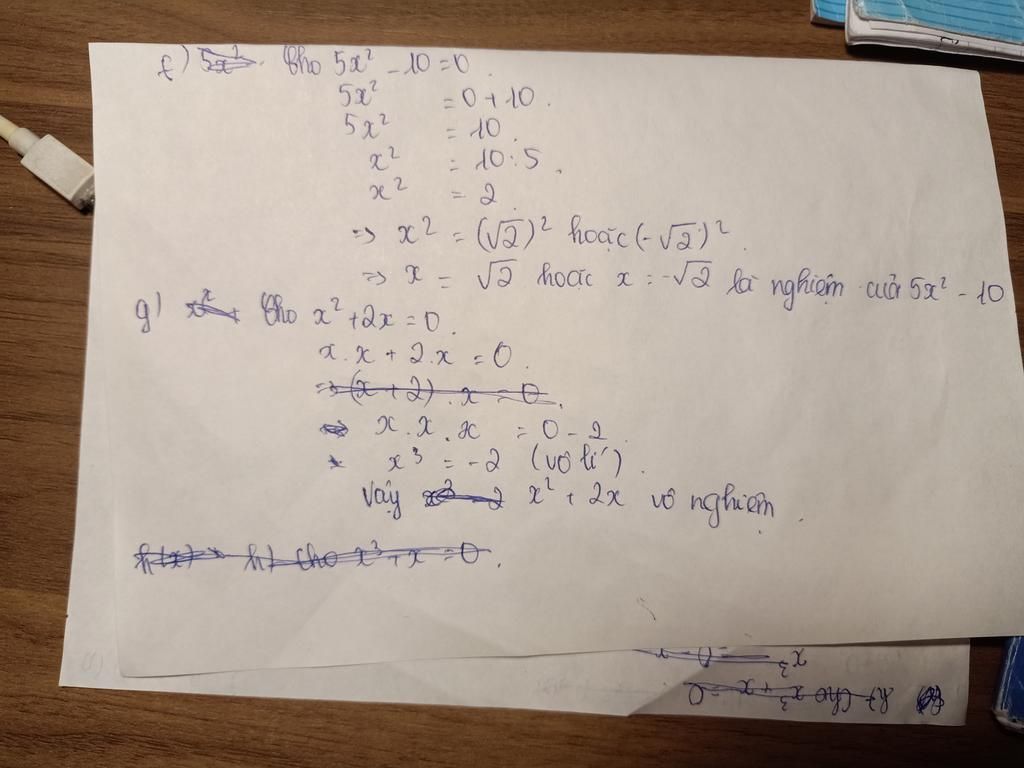 f) 5x² Cho 5x² - 10 = 0.
5x² = 0 + 10.
5x² = 10.
x² = 10 : 5.
x² = 2.
=> x² = (√2)² hoặc (-√2)².
=> x = √2 hoặc x = -√2 là nghiệm của 5x² - 10
g) Cho x² + 2x = 0.
x.x + 2.x = 0.
=> (x + 2).x = 0.
x.x.x = 0 - 2.
x³ = -2 (vô lí).
Vậy x² + 2x vô nghiệm.
h(x) h) Cho x³ + x = 0.
x³ = 0 -
h) Cho x³ + x = 0